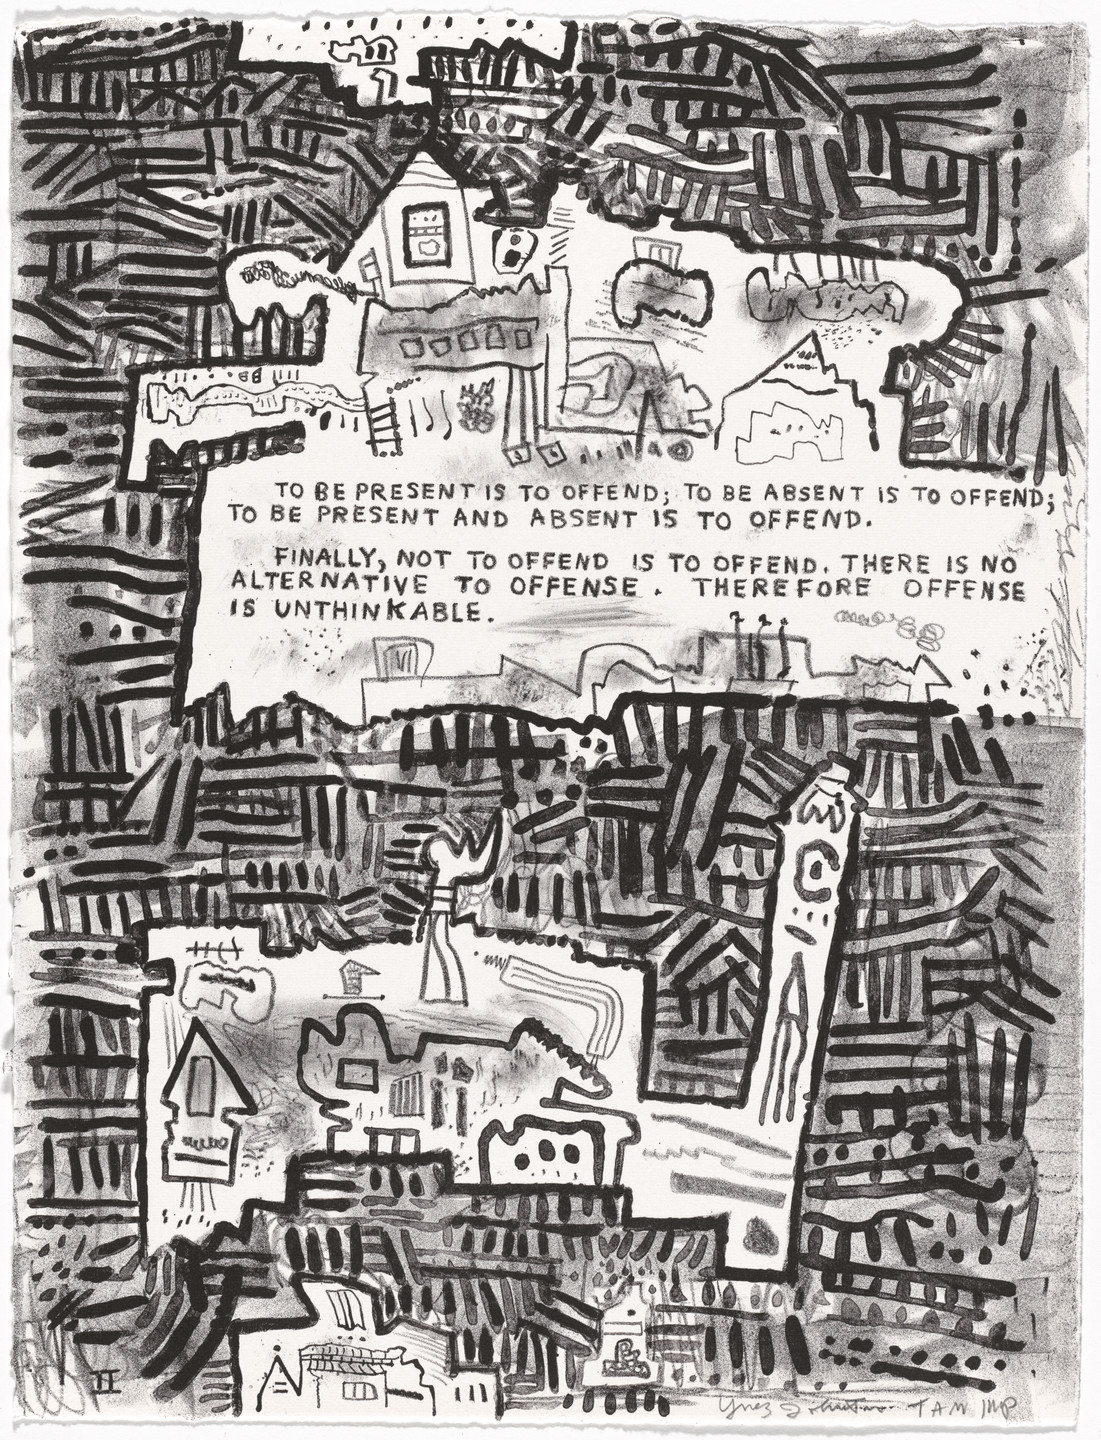 TO BE PRESENT IS TO OFFEND; TO BE ABSENT IS TO OFFEND;
TO BE PRESENT AND ABSENT IS TO OFFEND.
FINALLY, NOT TO OFFEND IS TO OFFEND. THERE IS NO
ALTERNATIVE TO OFFENSE. THEREFORE OFFENSE
IS UNTHINKABLE.
C
A
II
Ynez Johnston TAM IMP